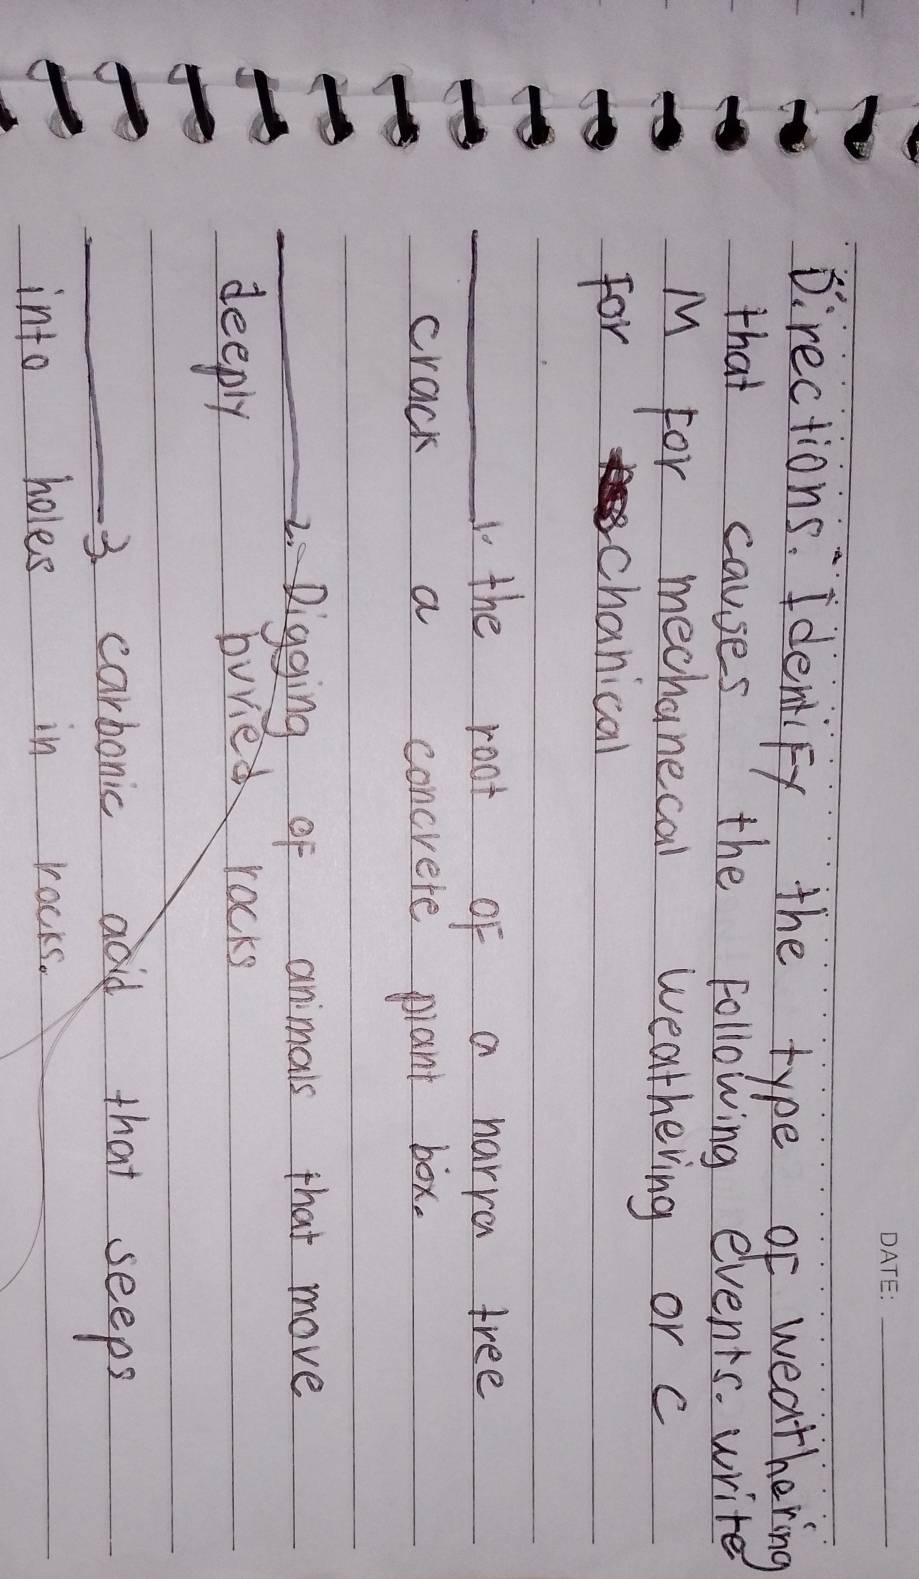 DATE:
Directions: Identify the type of weathering
that causes the following events. write
M for mechanecal weathering or C
for chanical
1. the root of a narra tree
crack a concrete plant box.
2. Digging of animals that move
deeply buried rocks
3. carbonic acid that seeps
into holes in rocks.